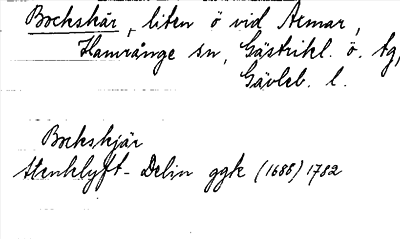 Bockskär, liten ö vid Axmar,
Hamrånge sn, Gästrikl. ö. tg,
Gävleb. l.
Bockskjär
Stenklyft-Delin ggk (1688) 1782